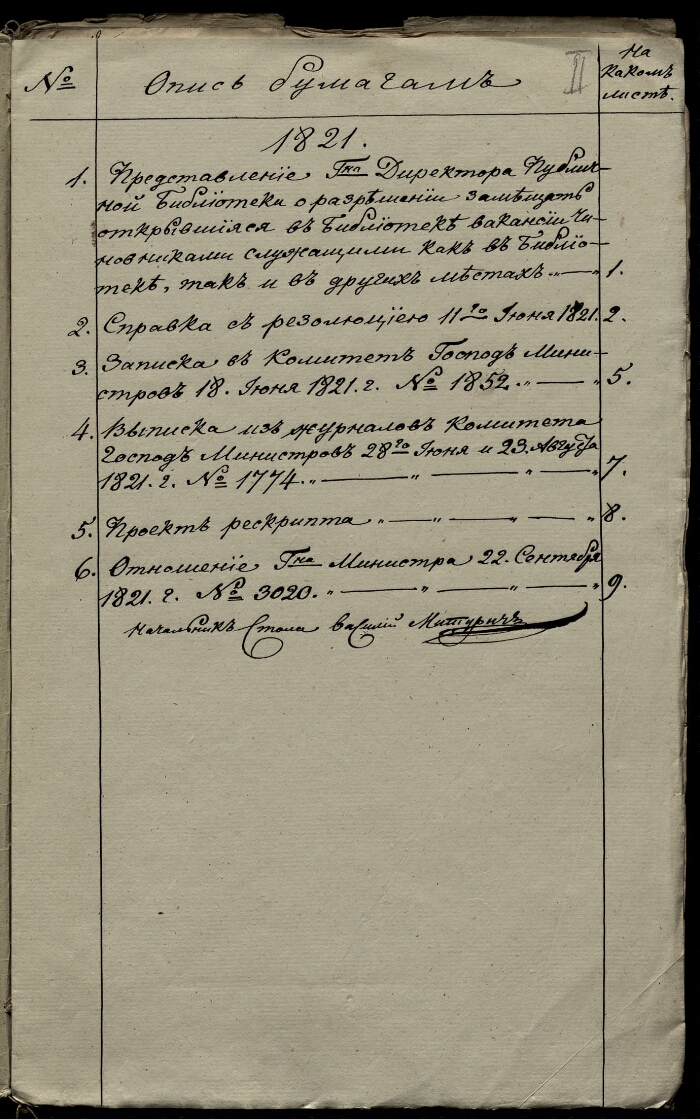 №
Опись бумагамъ
II
На
какомъ
листѣ.
1821.
1. Представленіе Гна Директора Публич-
ной Библіотеки о разрѣшеніи замѣщать
открывшіяся въ Библіотекѣ вакансіи Чи-
новниками служащими какъ въ Библіо-
текѣ, такъ и въ другихъ мѣстахъ „ — „ 1.
2. Справка съ резолюціею 11го Іюня 1821. 2.
3. Записка въ Комитетъ Господъ Мини-
стровъ 18. Іюня 1821. г. № 1852. „ — „ 5.
4. Выписка изъ журналовъ Комитета
Господъ Министровъ 28го Іюня и 23. Августа
1821. г. № 1774. „ — „ — „ — „ 7.
5. Проектъ рескрипта „ — „ — „ — „ 8.
6. Отношеніе Гна Министра 22. Сентября
1821. г. № 3020. „ — „ — „ — „ 9.
Начальникъ Стола Василій Митуричъ